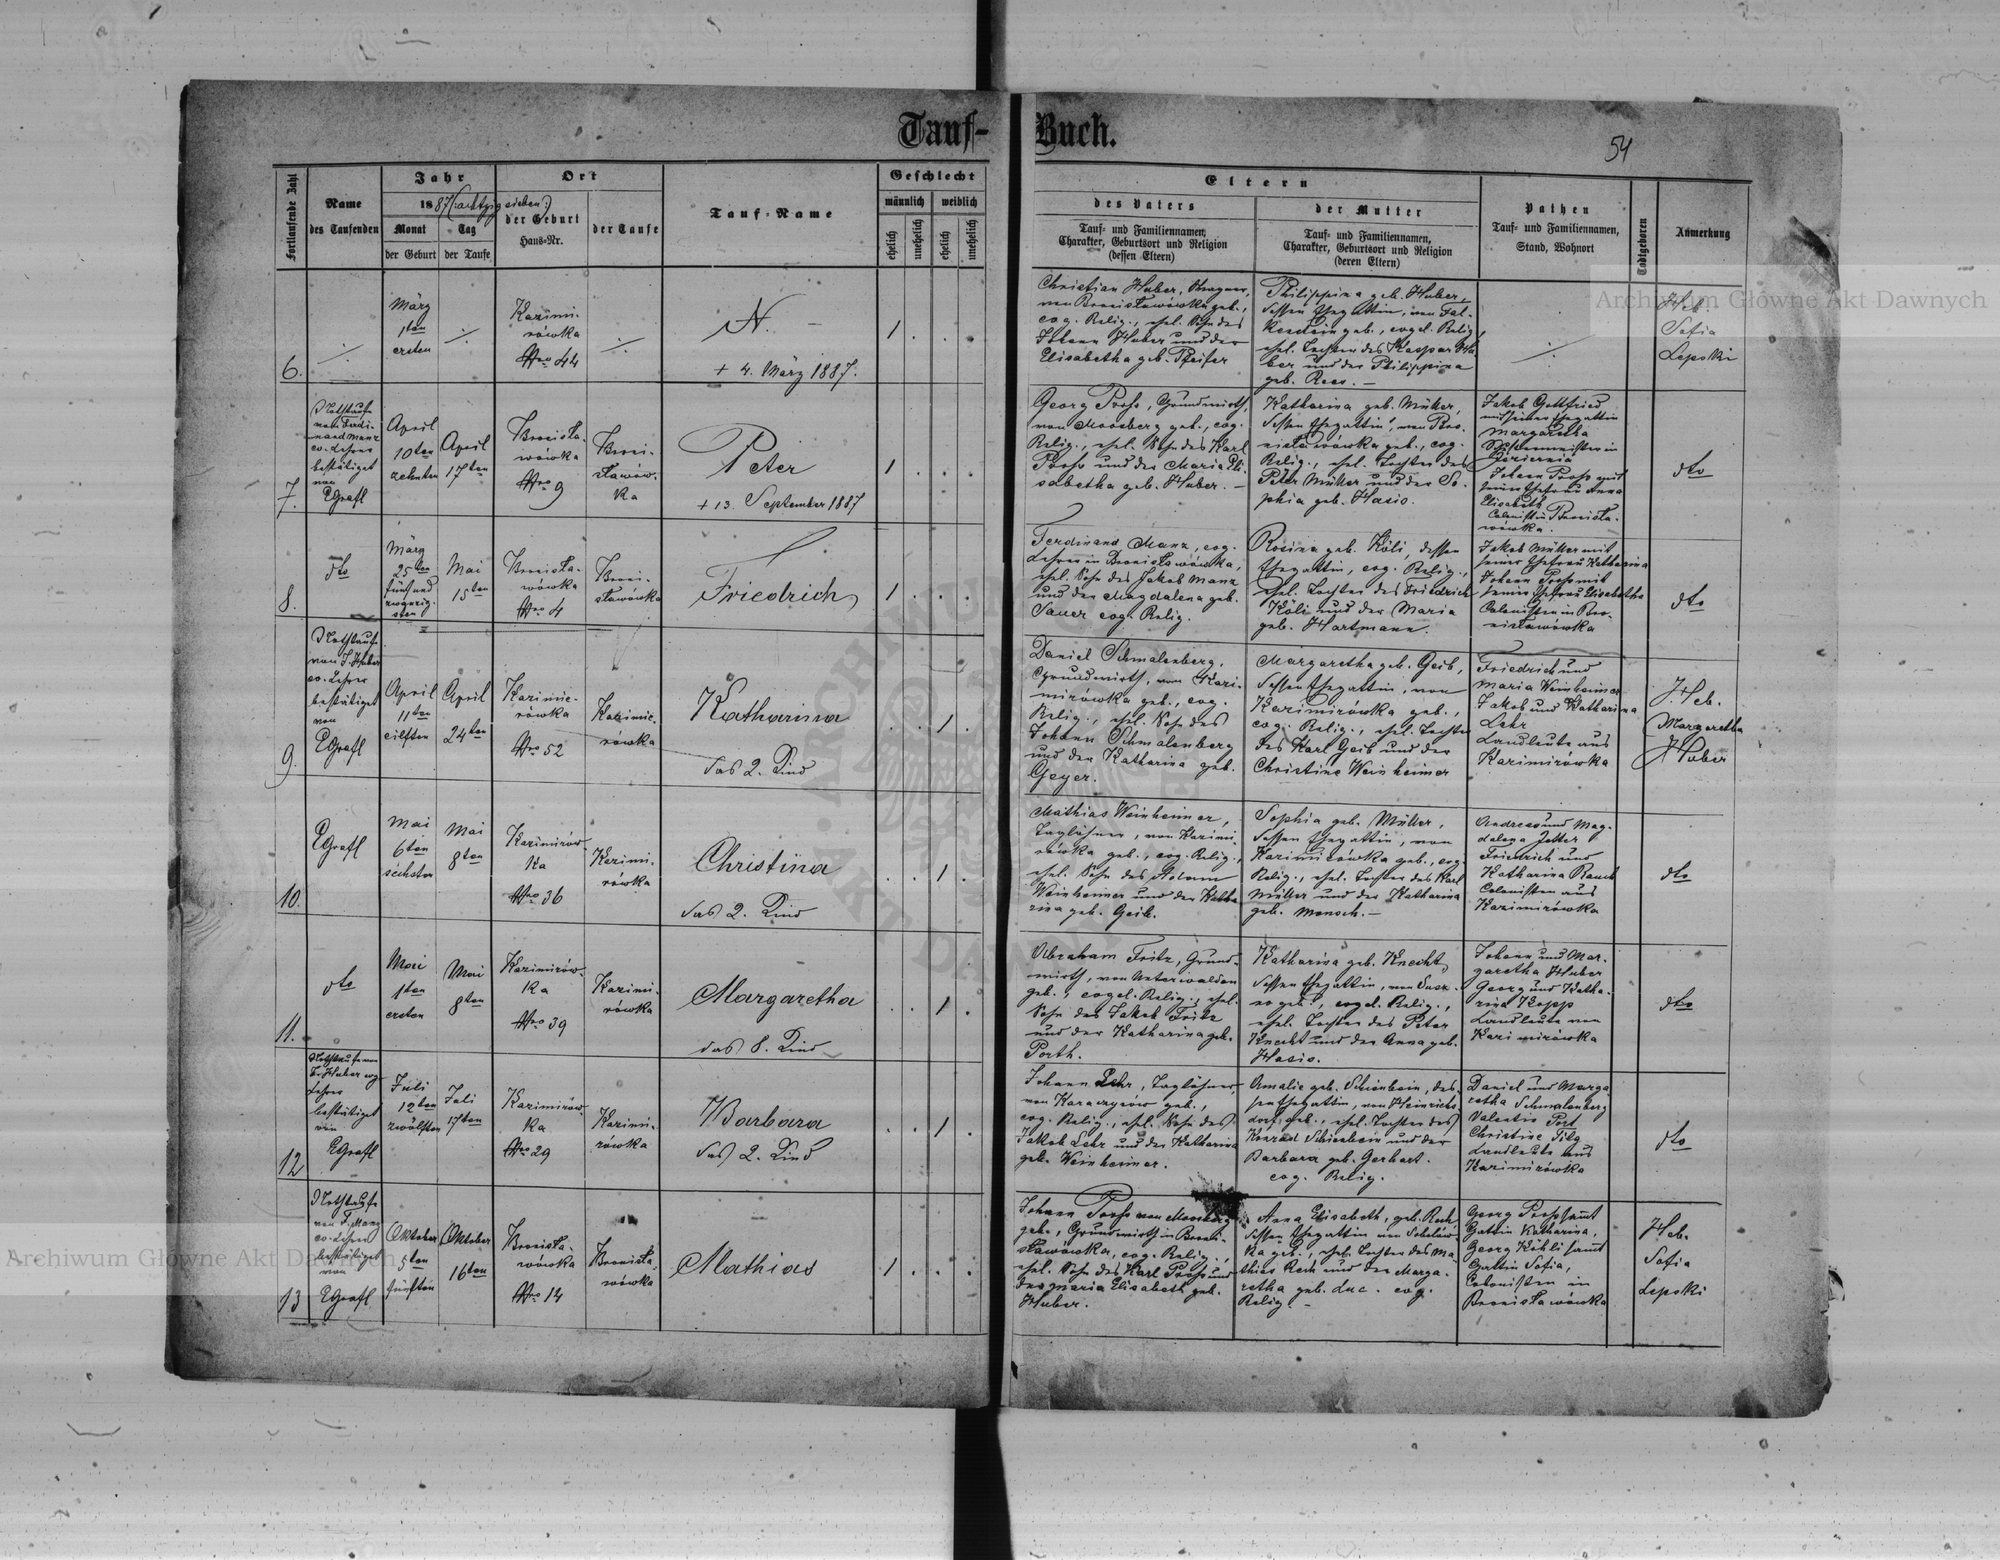 Tauf-Buch.
54
Fortlaufende Zahl
Name
des Taufenden
Jahr
1887 (:achtzig sieben:)
Monat
Tag
der Geburt
der Taufe
Ort
der Geburt
Haus-Nr.
der Taufe
Tauf-Name
Geschlecht
männlich
weiblich
ehelich
unehelich
ehelich
unehelich
Eltern
des Vaters
Tauf- und Familiennamen,
Charakter, Geburtsort und Religion
(dessen Eltern)
der Mutter
Tauf- und Familiennamen,
Charakter, Geburtsort und Religion
(deren Eltern)
Pathen
Tauf- und Familiennamen,
Stand, Wohnort
Todtgeboren
Anmerkung
6.
März
1ten
ersten
Kazimi-
rówka
Nro 44
N. –
+ 4. März 1887.
1
Christian Huber,
von Bronislawówka geb.,
evg. Relig., ehel. Sohn des
Johann Huber und der
Elisabetha geb. Pfeifer
Philippina geb. Huber,
dessen Ehegattin, von Fal-
kenstein geb., evgel. Relig.,
ehel. Tochter des Kaspar Hu-
ber und der Philippina
geb. Rees. –
Heb.
Sofia
Lepski
7.
Nothtaufe
von Ferdi-
nand Manz
ev. Lehrer
bestätiget
von
EGrafl
April
10ten
zehnten
April
17ten
Bronisla-
wówka
Nro 9
Broni-
slawów-
ka
Peter
+ 13. September 1887
1
Georg Prohs, Grundwirth,
von Moosberg geb., evg.
Relig., ehel. Sohn des Karl
Prohs und der Maria Eli-
sabetha geb. Huber. –
Katharina geb. Müller,
dessen Ehegattin, von Bro-
nislawówka geb., evg.
Relig., ehel. Tochter des
Peter Müller und der So-
phia geb. Hasis.
Jakob Gottfried
mit seiner Ehegattin
Margaretha
Johann Prohs mit
seiner Ehefrau Anna
Elisabeth
Colonist in Bronisla-
wówka.
dto
8.
dto
März
25ten
fünf und
zwanzig-
sten
Mai
15ten
Bronisla-
wówka
Nro 4
Broni-
slawówka
Friedrich
1
Ferdinand Manz, evg.
Lehrer in Bronislawówka,
ehel. Sohn des Jakob Manz
und der Magdalena geb.
Sauer evg. Relig.
Rosina geb. Köli, dessen
Ehegattin, evg. Relig.,
ehel. Tochter des Friedrich
Köli und der Maria
geb. Hartmann.
Jakob Müller mit
seiner Ehefrau Katharina
Johann Prohs mit
seiner Ehefrau Elisabetha
Colonisten in Bro-
nislawówka
dto
9.
Nothtaufe
von J. Huber
ev. Lehrer
bestätiget
von
EGrafl
April
11ten
eilften
April
24ten
Kazimie-
rówka
Nro 52
Kazimie-
rówka
Katharina
das 2. Kind
1
Daniel Schmalenberg,
Grundwirth, von Kazi-
mirówka geb., evg.
Relig., ehel. Sohn des
Johann Schmalenberg
und der Katharina geb.
Geyer.
Margaretha geb. Geib,
dessen Ehegattin, von
Kazimirówka geb.,
evg. Relig., ehel. Tochter
des Karl Geib und der
Christine Weinheimer
Friedrich und
Maria Weinheimer
Jakob und Katharina
Lehr
Landleute aus
Kazimirówka
Heb.
Margaretha
Huber
10.
EGrafl
Mai
6ten
sechsten
Mai
8ten
Kazimirów-
ka
Nro 36
Kazimi-
rówka
Christina
das 2. Kind
1
Mathias Weinheimer,
Taglöhner, von Kazimi-
rówka geb., evg. Relig.,
ehel. Sohn des Adam
Weinheimer und der Katha-
rina geb. Geib.
Sophia geb. Müller,
dessen Ehegattin, von
Kazimirówka geb., evg.
Relig., ehel. Tochter des Karl
Müller und der Katharina
geb. Mensch. –
Andreas und Mag-
dalena
Friedrich und
Katharina Rauch
Colonisten aus
Kazimirówka
dto
11.
dto
Mai
1ten
ersten
Mai
8ten
Kazimirów-
ka
Nro 39
Kazimi-
rówka
Margaretha
das 8. Kind
1
Abraham Fritz, Grund-
wirth, von Unterwalden
geb., evgel. Relig., ehel.
Sohn des Jakob Fritz
und der Katharina geb.
Porth.
Katharina geb. Knecht,
dessen Ehegattin, von
geb., evgel. Relig.,
ehel. Tochter des Peter
Knecht und der Anna geb.
Hasis.
Johann und Mar-
garetha Huber
Georg und Katha-
rina Kopp
Landleute von
Kazimirówka
dto
12
Nothtaufe von
Huber evg.
Lehrer
bestätiget
von
EGrafl
Juli
12ten
zwölften
Juli
17ten
Kazimirów-
ka
Nro 29
Kazimi-
rówka
Barbara
das 2. Kind
1
Johann Lehr, Taglöhner,
von geb.,
evg. Relig., ehel. Sohn des
Jakob Lehr und der Katharina
geb. Weinheimer.
Amalie geb. Schienbein, des-
sen Ehegattin, von Heinrichs-
dorf geb., ehel. Tochter des
Konrad Schienbein und der
Barbara geb. Gerhart.
evg. Relig.
Daniel und Marga-
retha Schmalenberg
Valentin Port
Christine Filg
Landleute aus
Kazimirówka
dto
13
Nothtaufe
von F. Manz
ev. Lehrer
bestätiget
von
EGrafl
Oktober
5ten
fünften
Oktober
16ten
Bronisla-
wówka
Nro 14
Bronisla-
wówka
Mathias
1
Johann Prohs von Moosberg
geb., Grundwirth in Broni-
slawówka, evg. Relig.,
ehel. Sohn des Karl Prohs und
der Maria Elisabeth geb.
Huber.
Anna Elisabeth, geb. Rech
dessen Ehegattin von
ka geb., ehel. Tochter des Ma-
thias Rech und der Marga-
retha geb. Luc. evg.
Relig. –
Georg Prohs sammt
Gattin Katharina,
Georg Köhli sammt
Gattin Sofia,
Colonisten in
Bronislawówka
Heb.
Sofia
Lepski
Archiwum Główne Akt Dawnych
Archiwum Główne Akt Dawnych